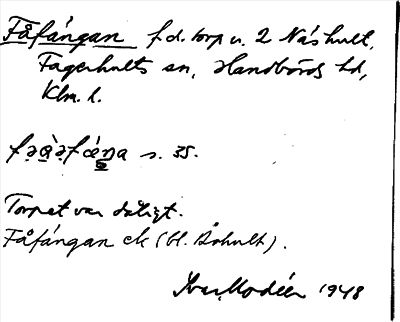 Fåfángan f.d. torp u. 2 Náshult,
Fagerhults sn, Handbörds hd,
Klm. l.
s. 35.
Torpet var dåligt.
Fåfángan ek (bl. Åshult).
Ivar Modéer 1948